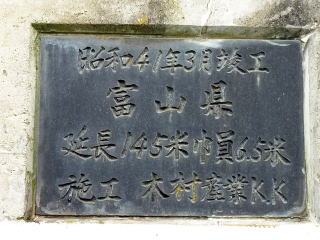 昭和41年3月竣工
富山県
延長145米巾員6.5米
施工 木村産業K.K